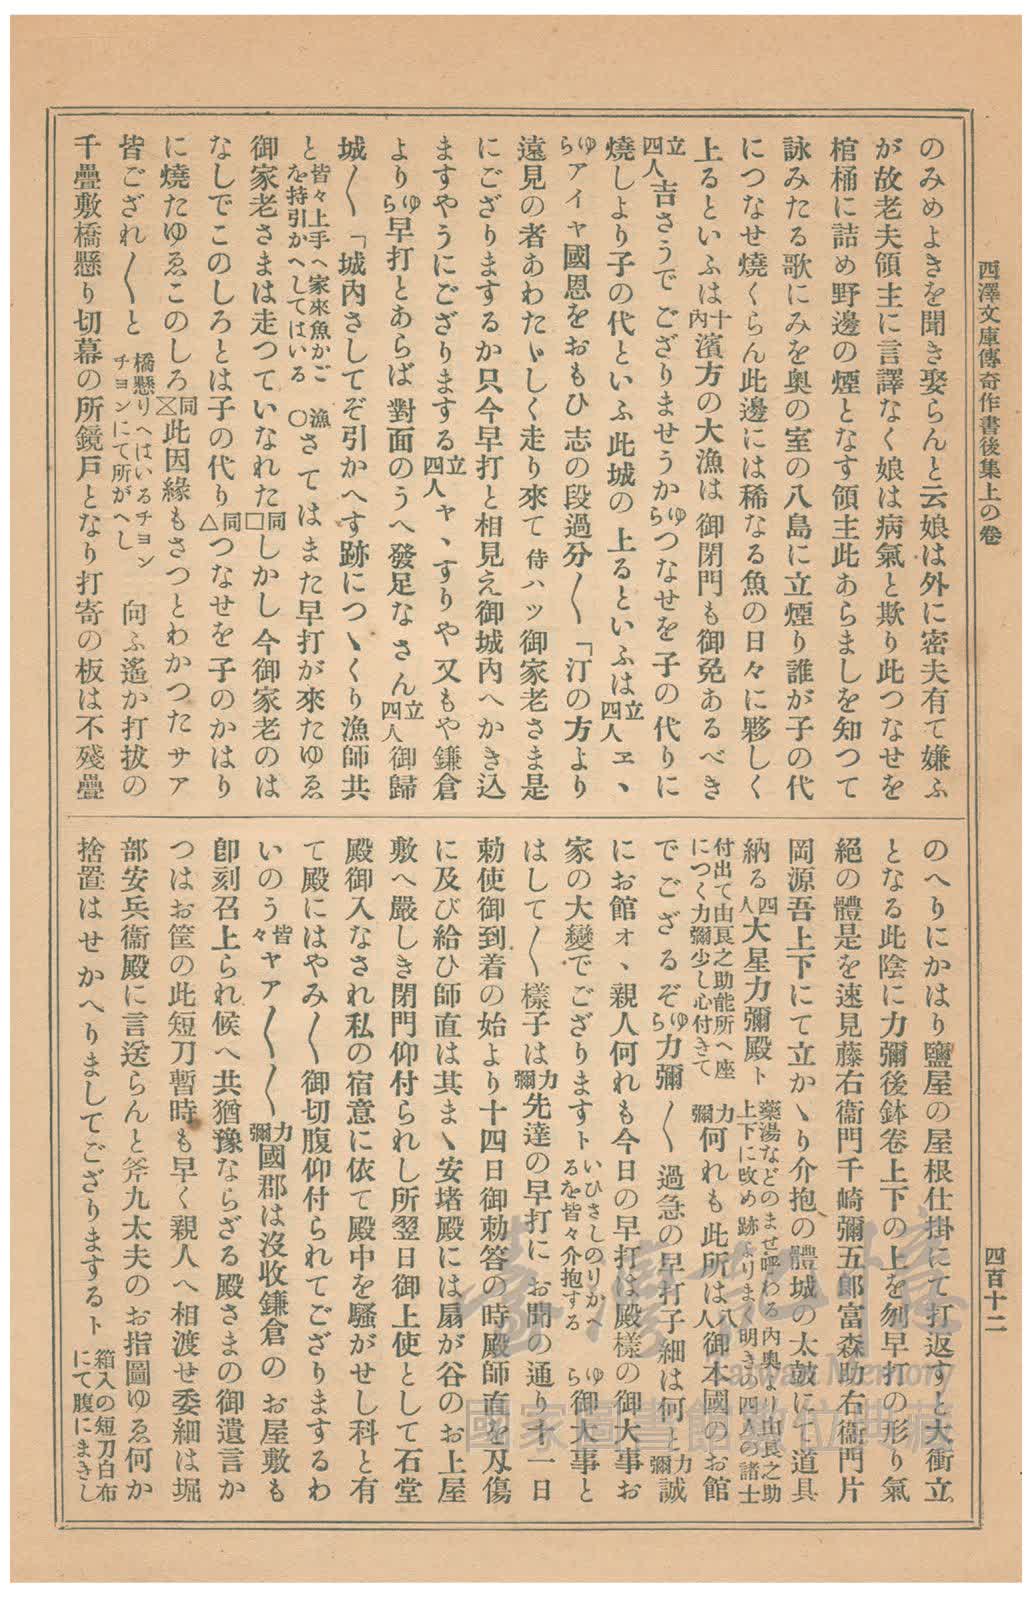 西澤文庫傳奇作書後集上の卷
四百十二
のみめよきを聞き娶らんと云娘は外に密夫有て嫌ふ
が故老夫領主に言譯なく娘は病氣と欺り此つなせを
棺桶に詰め野邊の煙となす領主此あらましを知つて
詠みたる歌にみを奥の室の八島に立煙り誰が子の代
につなせ燒くらん此邊には稀なる魚の日々に夥しく
上るといふは十内濱方の大漁は御閉門も御免あるべき
立四人吉さうでござりませうかゆらつなせを子の代りに
燒しより子の代といふ此城の上るといふは立四人ヱヽ
ゆらアイヤ國恩をおもひ志の段過分〳〵「汀の方より
遠見の者あわたゞしく走り來て侍ハッ御家老さま是
にござりまするか只今早打と相見え御城內へかき込
ますやうにござりまする立四人ャヽすりや又もや鎌倉
よりゆら早打とあらば對面のうへ發足なさん立四人御歸
城〳〵「城內さしてぞ引かへす跡につゝくり漁師共
と皆々上手へ家來魚かごを持引かへしてはいる漁○さてはまた早打が來たゆゑ
御家老さまは走つていなれた同□しかし今御家老のは
なしでこのしろとは子の代り同△つなせを子のかはり
に燒たゆゑこのしろ同此因緣もさつとわかつたサア
皆ござれ〳〵と橋懸りへはいるチョンチョンにて所がへし向ふ遙か打拔の
千疊敷橋懸り切幕の所鏡戸となり打寄の板は不殘疊
のへりにかはり鹽屋の屋根仕掛にて打返すと大衝立
となる此陰に力彌後鉢卷上下の上を刎早打の形り氣
絕の體是を速見藤右衞門千崎彌五郎富森助右衞門片
岡源吾上下にて立かゝり介抱の體城の太鼓にて道具
納る四人大星力彌殿ト藥湯などのませ呼わる內奥より由良之助上下に改め跡よりまく明きの四人の諸士
付出て由良之助能所へ座につく力彌少し心付きて力彌何れも此所は八人御本國のお館
でござるぞゆら力彌〳〵過急の早打子細は何と力彌誠
にお館ォヽ親人何れも今日の早打は殿樣の御大事お
家の大變でござりますトいひさしのりかへるを皆々介抱するゆら御大事と
はして〳〵樣子は力彌先達の早打にお聞の通り十一日
勅使御到着の始より十四日御勅答の時殿師直を刄傷
に及び給ひ師直は其まゝ安堵殿には扇が谷のお上屋
敷へ嚴しき閉門仰付られし所翌日御上使として石堂
殿御入なされ私の宿意に依て殿中を騷がせし科と有
て殿にはやみ〳〵御切腹仰付られてござりまするわ
いのう皆々ャア〳〵〳〵力彌國郡は沒收鎌倉のお屋敷も
卽刻召上られ候へ共猶豫ならざる殿さまの御遺言か
つはお筐の此短刀暫時も早く親人へ相渡せ委細は堀
部安兵衞殿に言送らんと斧九太夫のお指圖ゆゑ何か
捨置はせかへりましてござりまするト箱入の短刀白布にて腹にまきし
臺灣記憶
Taiwan Memory
國家圖書館數位典藏